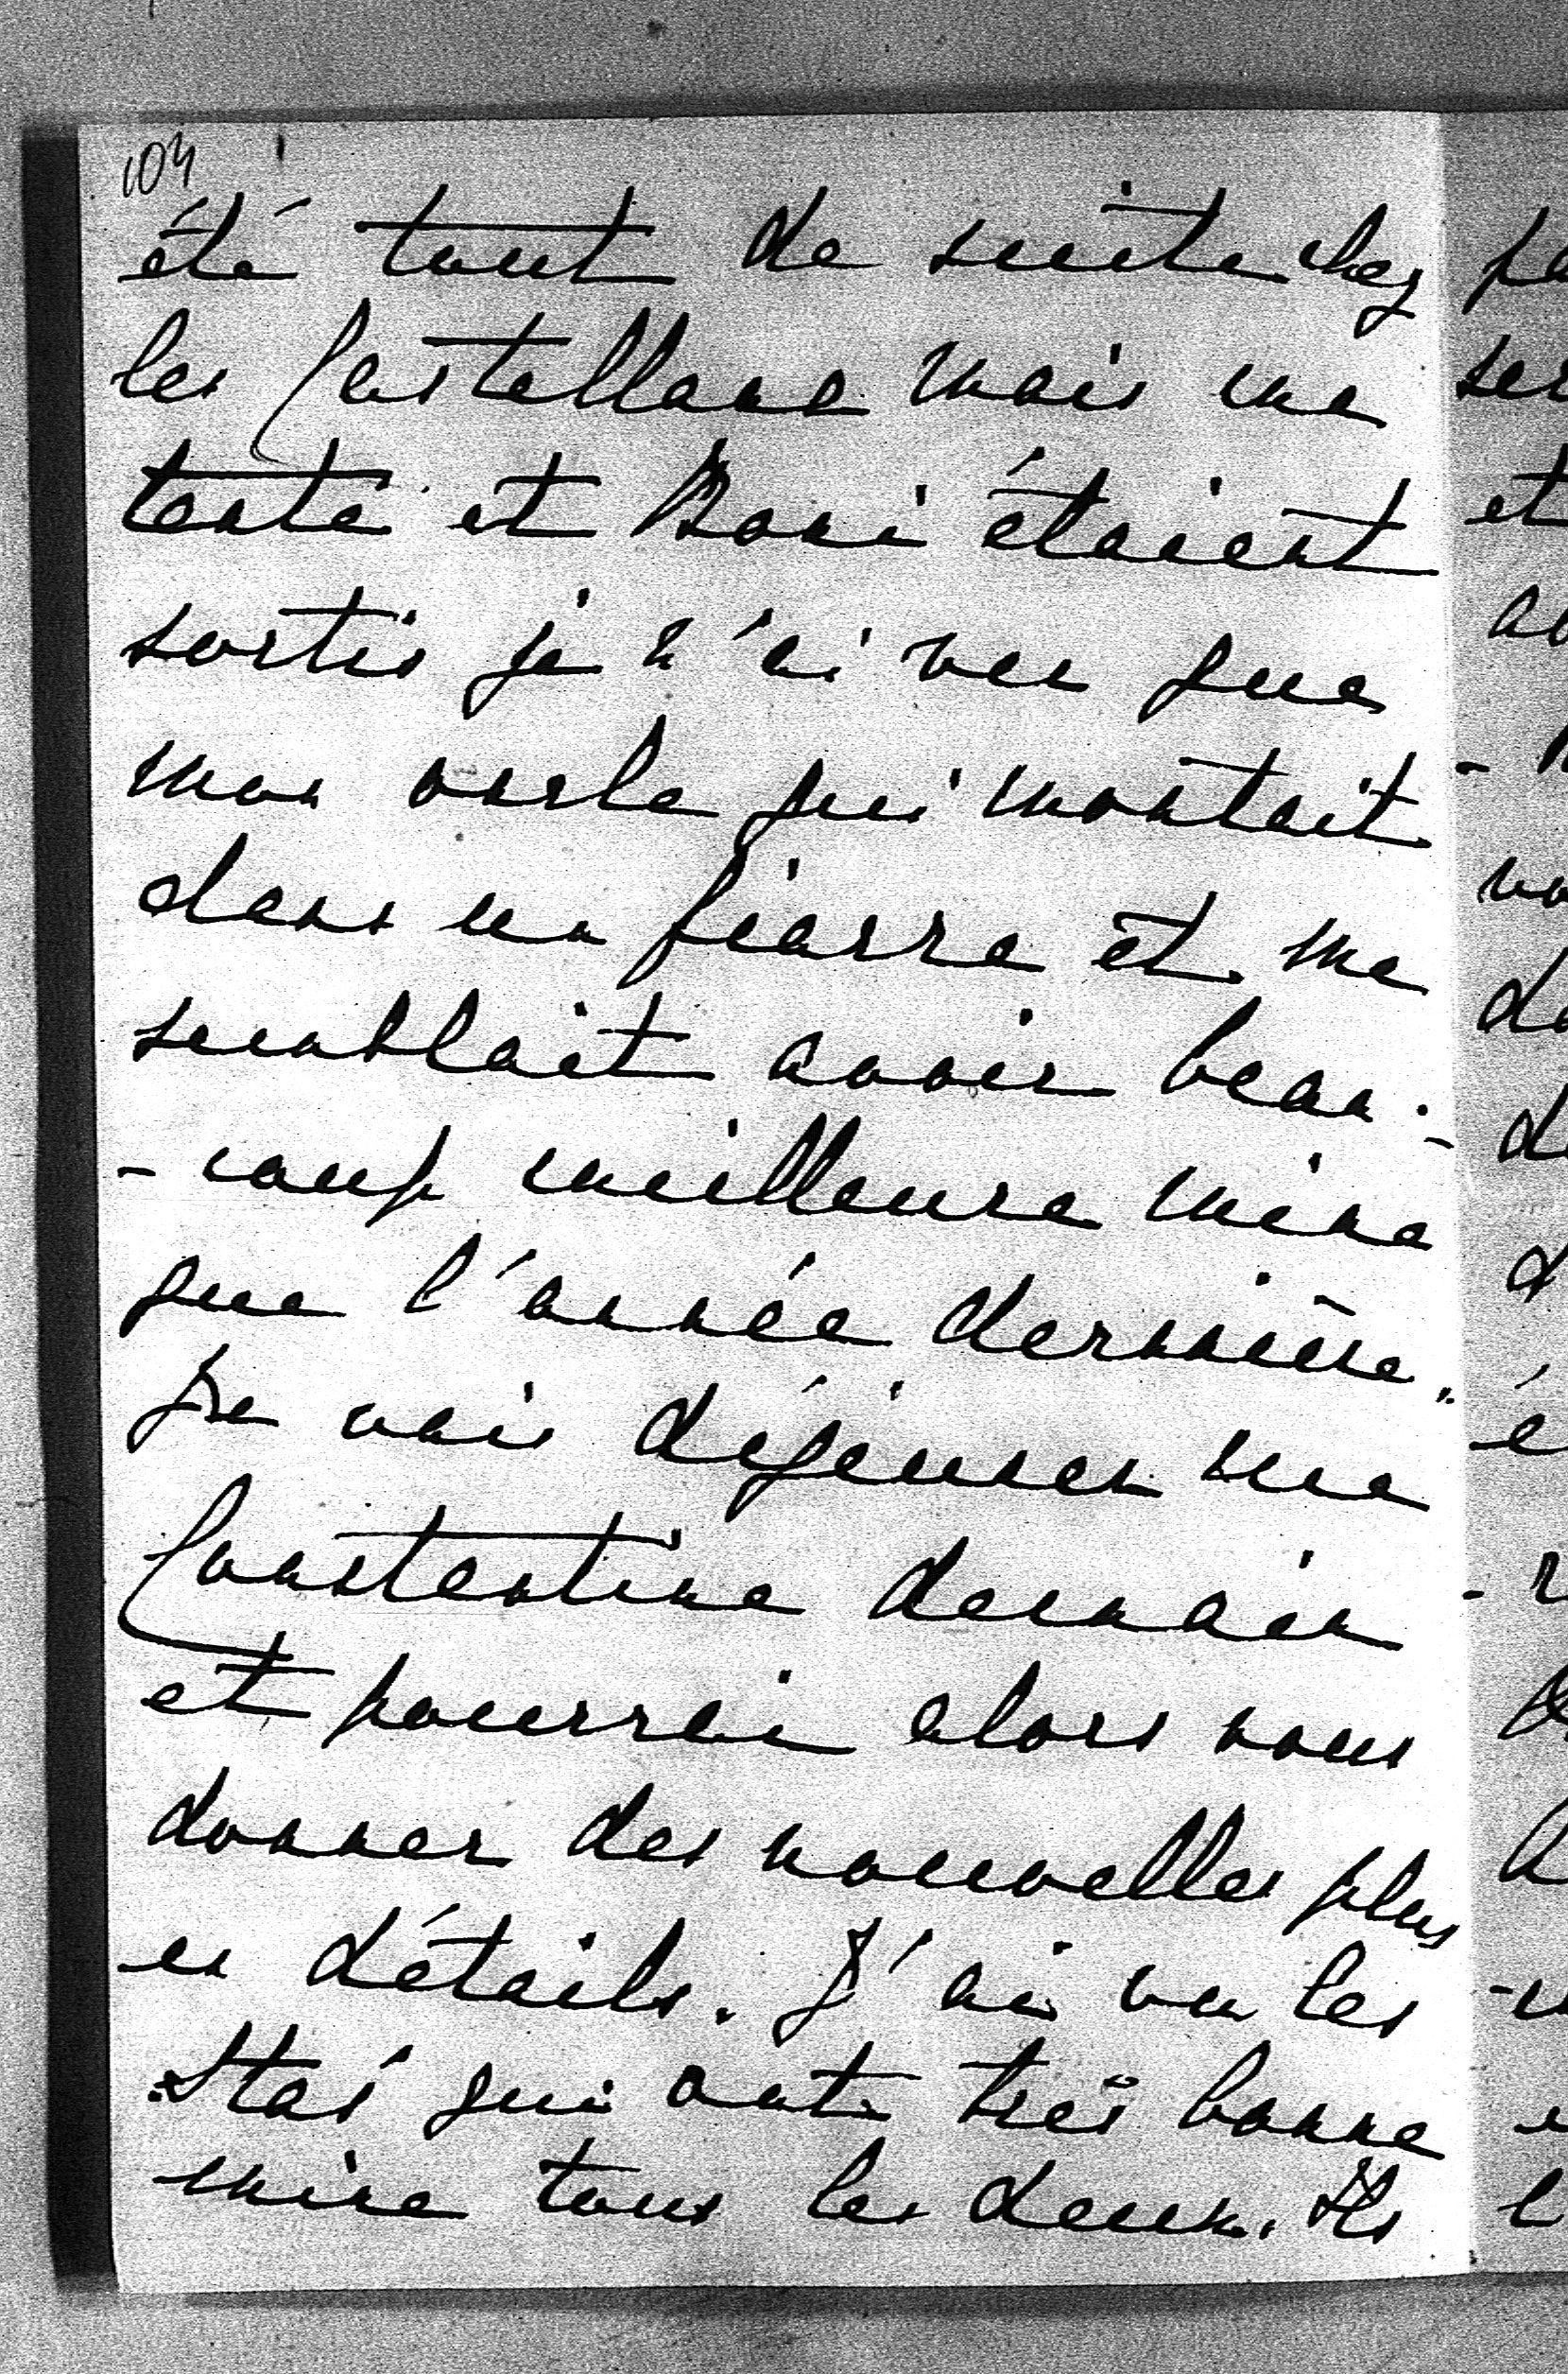 104
été tout de suite chez
les Castellane mais ma
tante et Boni étaient
sortis je n'ai vu que
mon oncle qui montait
dans un fiacre et me
semblait avoir beau-
-coup meilleure mine
que l'année dernière.
Je vais déjeuner rue
Constantine demain
et pourrai alors vous
donner des nouvelles plus
en détails. J'ai vu les
Stas' qui ont très bonne
mine tous les deux. Ils